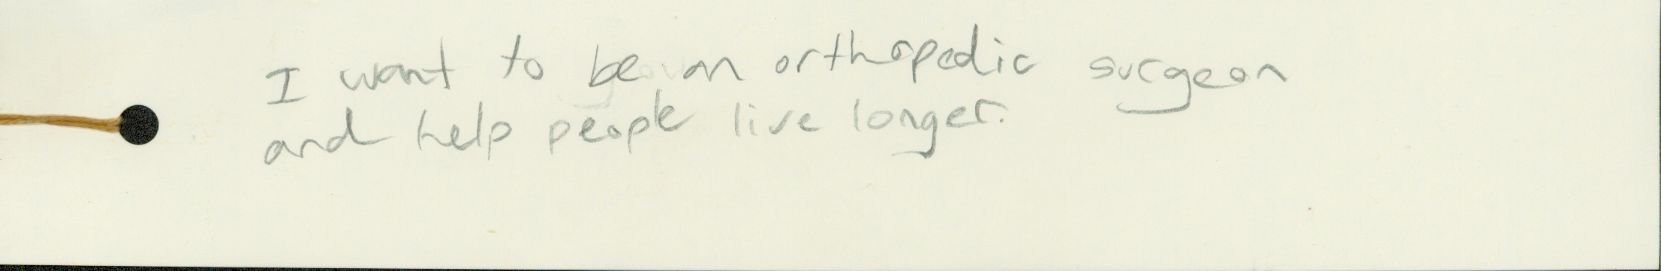 I want to be an orthopedic surgeon
and help people live longer.